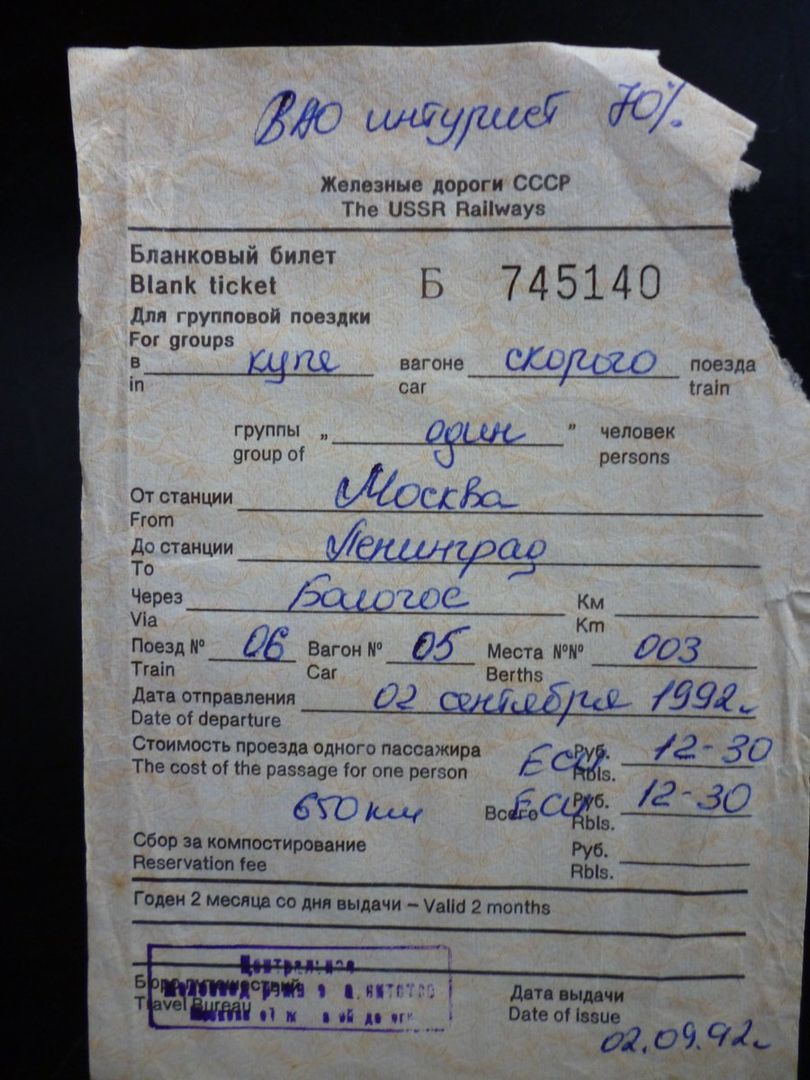 ВАО интурист 70%
Железные дороги СССР
The USSR Railways
Бланковый билет
Blank ticket
Б 745140
Для групповой поездки
For groups
в купе вагоне скорого поезда
in car train
группы „ один " человек
group of persons
От станции Москва
From
До станции Ленинград
To
Через Бологое Км
Via Km
Поезд № 06 Вагон № 05 Места №№ 003
Train Car Berths
Дата отправления 02 сентября 1992г.
Date of departure
Стоимость проезда одного пассажира ECU Руб. 12-30
The cost of the passage for one person Rbls.
650 км Всего ECU Руб. 12-30
Rbls.
Сбор за компостирование Руб.
Reservation fee Rbls.
Годен 2 месяца со дня выдачи – Valid 2 months
Центральное
Бюро путешествий
Travel Bureau
Дата выдачи
Date of issue
02.09.92г.